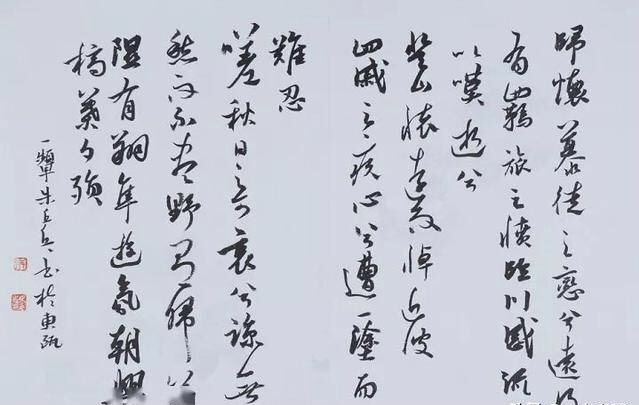 歸懷慕徒之戀兮遠行
有羈旅之憤臨川感流
以嘆逝兮
登山懷遠而悼近彼
四戚之疚心兮遭一塗而
難忍
嗟秋日之可哀兮諒無
愁而不盡野有歸燕
隰有翔隼遊氛朝興
槁葉夕殞
書於東甌